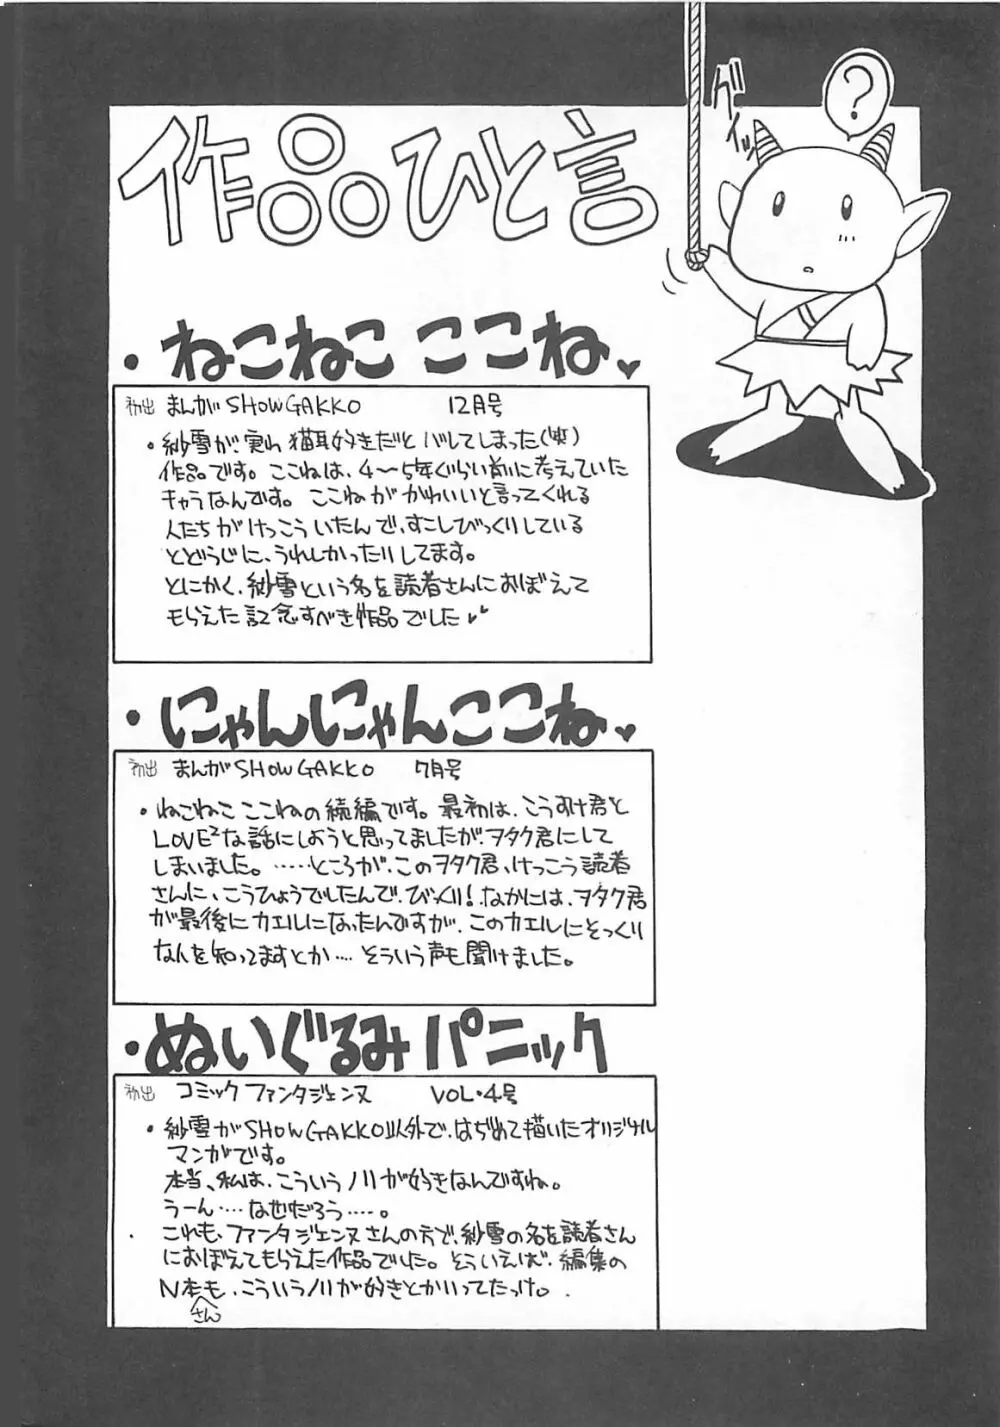 作品ひと言
グイッ
?
・ねこねこ ここね♥
初出 まんがSHOWGAKKO 12月号
・紗雪が、実ゎ猫耳好きだとバレてしまった(笑)
作品です。ここねは、4〜5年ぐらい前に考えていた
キャラなんです。ここねがかわいいと言ってくれる
人たちがけっこういたんで、すこしびっくりしている
とどうじに、うれしかったりしてます。
とにかく、紗雪という名を読者さんにおぼえて
もらえた記念すべき作品でした♥
・にゃんにゃんここね♥
初出 まんがSHOWGAKKO 7月号
・ねこねこ ここねの続編です。最初は、こうすけ君と
LOVE²な話にしようと思ってましたが、ヲタク君にして
しまいました。……ところが、このヲタク君、けっこう読者
さんに、こうひょうでしたんで、びっくり!なかには、ヲタク君
が最後にカエルになったんですが、このカエルにそっくり
な人を知ってますとか…. そういう声も聞けました。
・ぬいぐるみパニック
初出 コミックファンタジェンヌ VOL・4号
・紗雪がSHOWGAKKO以外で、はぢめて描いたオリジナル
マンガです。
本当、私は、こういうノリが好きなんですね。
うーん….なぜだろう…..。
これも、ファンタジェンヌさんの方で、紗雪の名を読者さん
におぼえてもらえた作品でした。そういえば、編集の
N本さんも、こういうノリが好きとかいってたっけ。